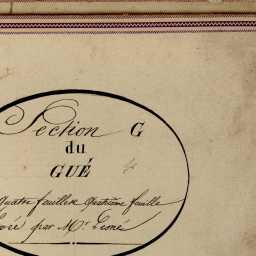 Section G
du
GUÉ
quatre feuilles quatrième feuille
par Mr